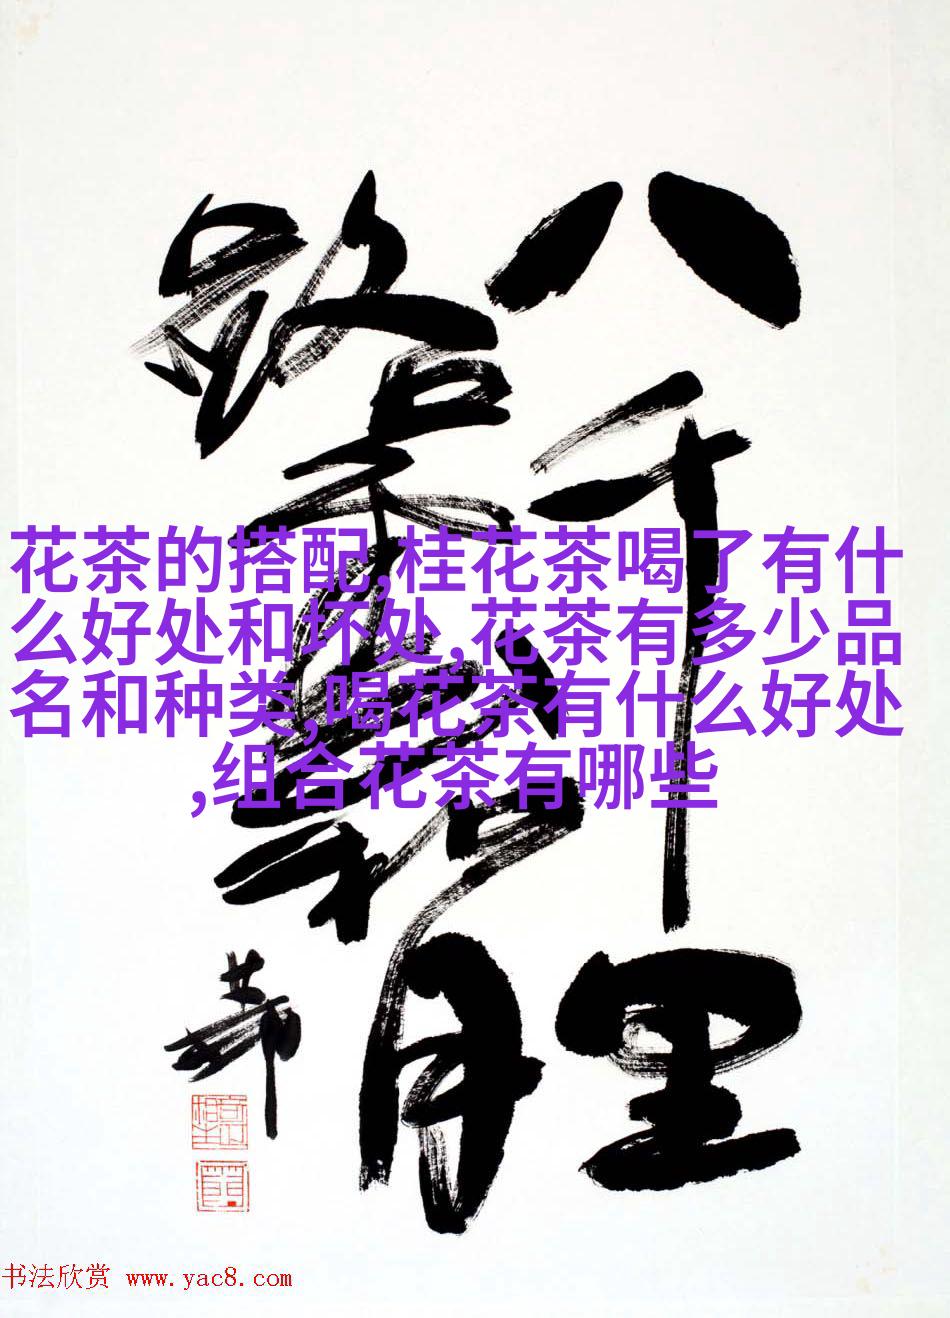 八千里
路云和月
花茶的搭配,桂花茶喝了有什
么好处和坏处,花茶有多少品
名和种类,喝花茶有什么好处
,组合花茶有哪些
书法欣赏 www.yac8.com